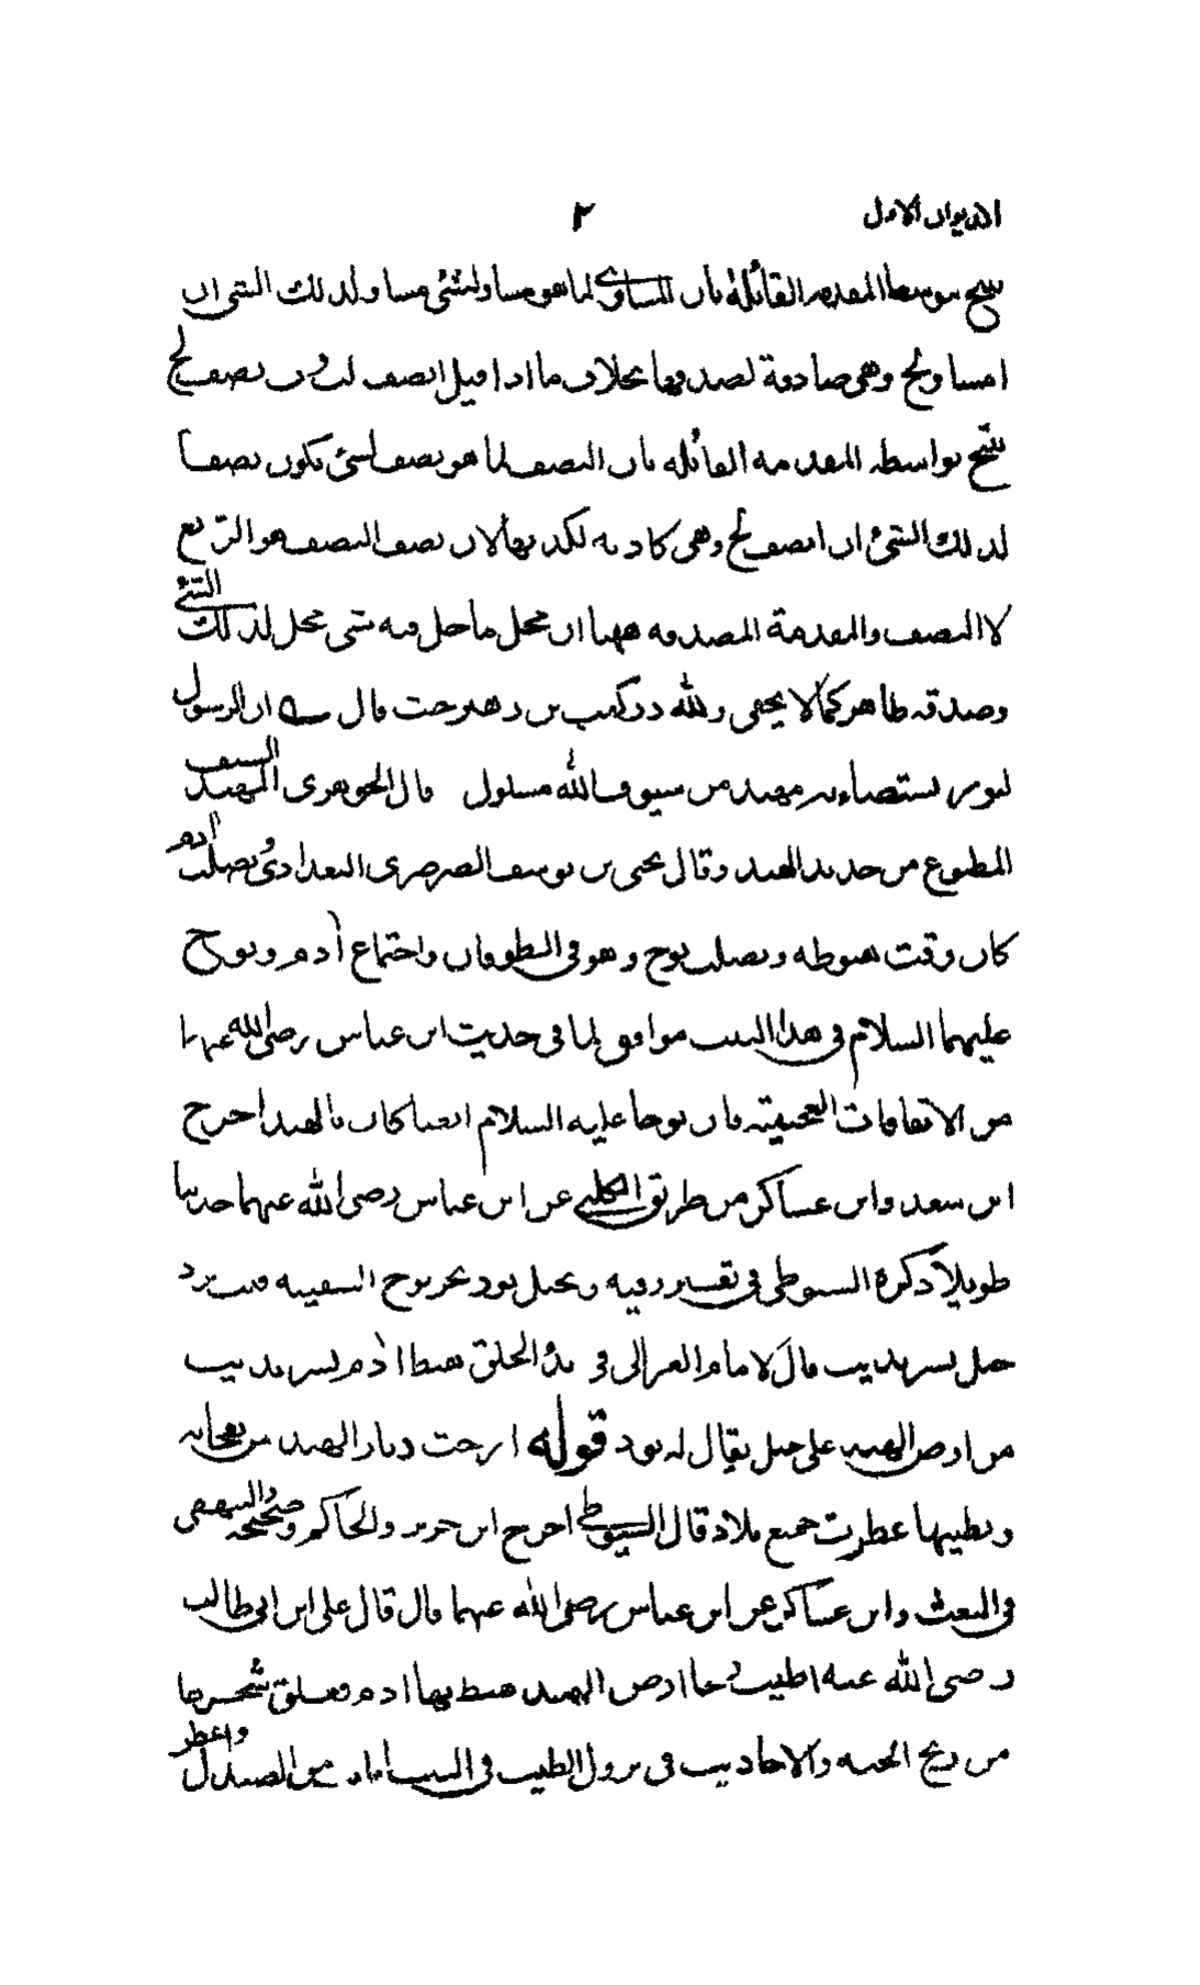 الديوان الاول ٢
ينتج بتوسط المقدمة القائلة بان المساوي لما هو مساو لشئ مساو لذلك الشئ ان
امساو لج وهي صادقة لصدقها بخلاف ما اذا قيل انصف لب وب نصف لج
ينتج بواسطة المقدمة القائلة بان النصف لما هو نصف لشئ يكون نصفا
لذلك الشئ ان انصف لج وهي كاذبة لكذبها لان نصف النصف هو الربع
لا النصف والمقدمة المصدوقة ههنا ان محل ما حل فيه شئ محل لذلك الشئ
وصدقه ظاهر كما لا يخفى ولله در كعب بن زهير حيث قال ان الرسول
لنور يستضاء به مهند من سيوف الله مسلول قال الجوهري المهند السيف
المطبوع من حديد الهند وقال يحيى بن يوسف الصرصري البغدادي وبصلب ادم
كان وقت هبوطه وبصلب نوح وهو في الطوفان واجتماع آدم ونوح
عليهما السلام في هذا البيت موافق لما في حديث ابن عباس رضي الله عنهما
من الاتفاقات العجيبة فان نوحا عليه السلام ايضا كان بالهند اخرج
ابن سعد وابن عساكر من طريق الكلبي عن ابن عباس رضي الله عنهما حديثا
طويلا ذكره السيوطي في تفسيره وفيه ونجل بوذ نجر نوح السفينة
جبل بسرنديب قال الامام الغزالي في بدؤ الخلق هبط اٰدم بسرنديب
من ارض الهند على جبل يقال له نود قوله ارجت ديار الهند من نفحاته
وبطيبها عطرت جميع بلاد قال السيوطي اخرج ابن جرير والحاكم وصححه والبيهقي
في البعث وابن عساكر عن ابن عباس رضي الله عنهما قال قال علي ابن ابي طالب
رضي الله عنه اطيب ريحا ارض الهند هبط بها ادم فعلق شجرها
من ريح الجنة والاحاديث في نزول الطيب في الصندل واعطر